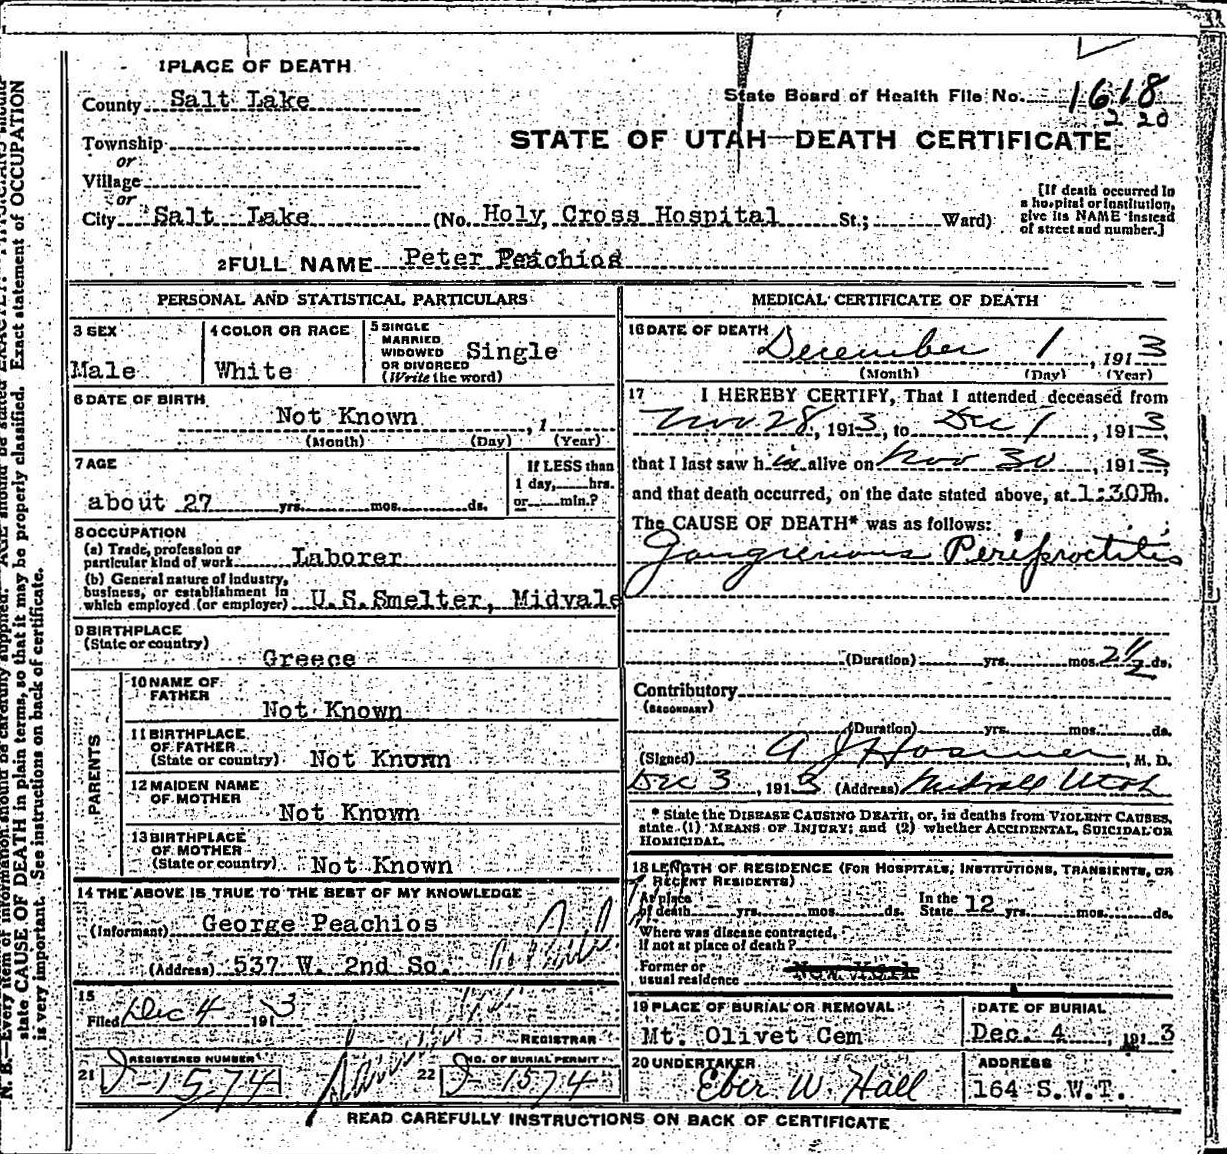 1 PLACE OF DEATH
County Salt Lake
State Board of Health File No. 1618
2 20
STATE OF UTAH—DEATH CERTIFICATE
Township
or
Village
or
City Salt Lake (No. Holy Cross Hospital St.; Ward)
[If death occurred in a hospital or institution, give its NAME instead of street and number.]
2 FULL NAME Peter Peachios
PERSONAL AND STATISTICAL PARTICULARS
3 SEX
Male
4 COLOR OR RACE
White
5 SINGLE
MARRIED
WIDOWED
OR DIVORCED
(Write the word)
Single
6 DATE OF BIRTH
Not Known , 1
(Month) (Day) (Year)
7 AGE
about 27 yrs. mos. ds.
If LESS than
1 day, hrs.
or min.?
8 OCCUPATION
(a) Trade, profession or
particular kind of work Laborer
(b) General nature of industry,
business, or establishment in
which employed (or employer) U.S.Smelter, Midvale
9 BIRTHPLACE
(State or country)
Greece
PARENTS
10 NAME OF
FATHER
Not Known
11 BIRTHPLACE
OF FATHER
(State or country) Not Known
12 MAIDEN NAME
OF MOTHER
Not Known
13 BIRTHPLACE
OF MOTHER
(State or country) Not Known
14 THE ABOVE IS TRUE TO THE BEST OF MY KNOWLEDGE
(Informant) George Peachios
(Address) 537 W. 2nd So.
15
Filed Dec 4 1913
REGISTRAR
REGISTERED NUMBER
21 1574
NO. OF BURIAL PERMIT
22 1574
MEDICAL CERTIFICATE OF DEATH
16 DATE OF DEATH
December 1 , 1913
(Month) (Day) (Year)
17 I HEREBY CERTIFY, That I attended deceased from
Nov 28, 1913, to Dec 1, 1913,
that I last saw h im alive on Nov 30, 1913,
and that death occurred, on the date stated above, at 1:30P m.
The CAUSE OF DEATH* was as follows:
Gangrenous Periproctitis
(Duration) yrs. mos. 2 1/2 ds.
Contributory
(SECONDARY)
(Duration) yrs. mos. ds.
(Signed) A J Hosmer , M. D.
Dec 3 , 1913 (Address) Midvale Utah
* State the DISEASE CAUSING DEATH, or, in deaths from VIOLENT CAUSES,
state (1) MEANS OF INJURY; and (2) whether ACCIDENTAL, SUICIDAL OR
HOMICIDAL.
18 LENGTH OF RESIDENCE (FOR HOSPITALS, INSTITUTIONS, TRANSIENTS, OR
RECENT RESIDENTS)
At place
of death yrs. mos. ds.
In the
State 12 yrs. mos. ds.
Where was disease contracted,
if not at place of death?
Former or
usual residence New York
19 PLACE OF BURIAL OR REMOVAL
Mt. Olivet Cem
DATE OF BURIAL
Dec. 4 , 1913
20 UNDERTAKER
Eber W. Hall
ADDRESS
164 S.W.T.
READ CAREFULLY INSTRUCTIONS ON BACK OF CERTIFICATE
N. B.—Every item of information should be carefully supplied. AGE should be stated EXACTLY. PHYSICIANS should
state CAUSE OF DEATH in plain terms, so that it may be properly classified. Exact statement of OCCUPATION
is very important. See instructions on back of certificate.